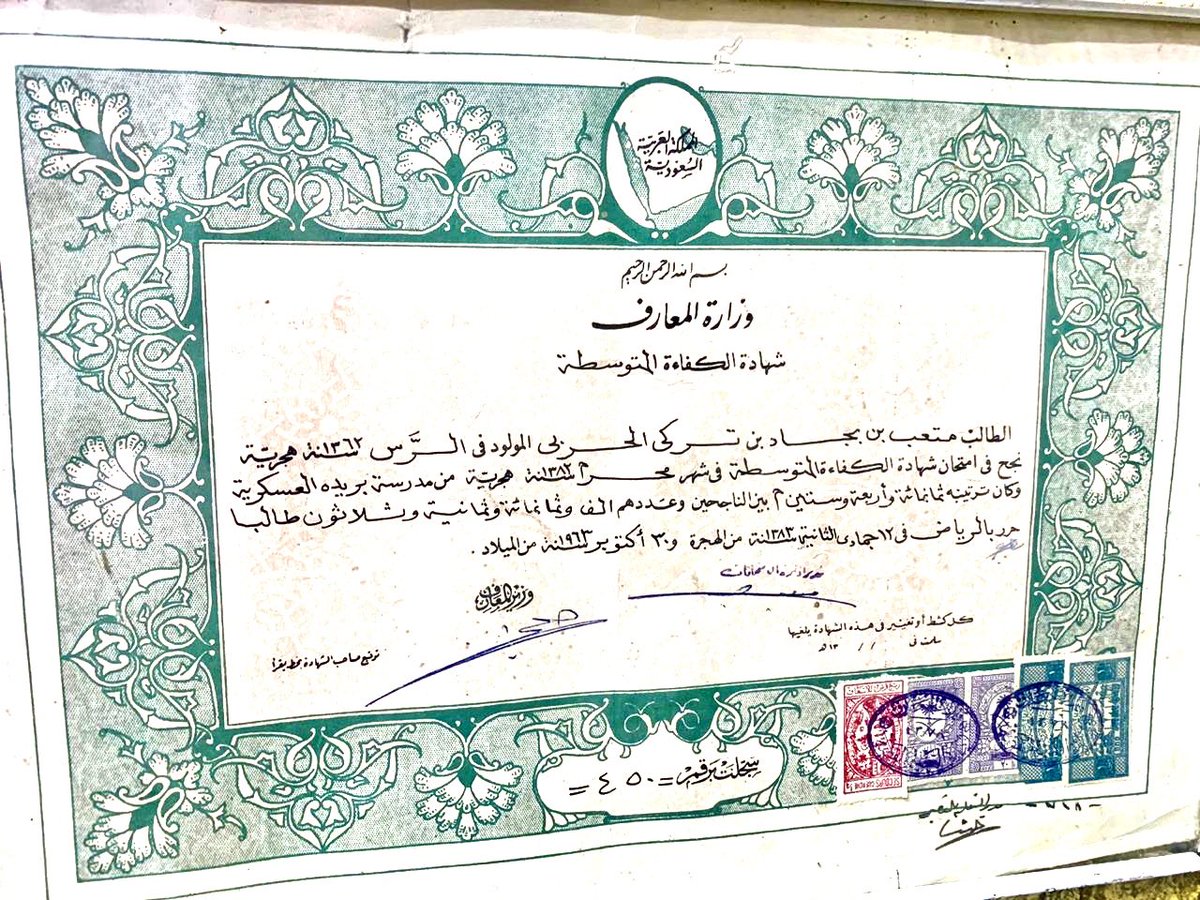 المملكة العربية
السعودية
بسم الله الرحمن الرحيم
وزارة المعارف
شهادة الكفاءة المتوسطة
الطالب متعب بن بجاد بن تركي الحربي المولود في الرَّس سنة ١٣٦٢ هجريّة
نجح في امتحان شهادة الكفاءة المتوسطة في شهر محرم سنة ١٣٨٢ هجريّة من مدرسة بريده العسكرية
وكان ترتيبه ثمانمائة وأربعة وستين م بين الناجحين وعددهم الف وثمانمائة وثمانية وثلاثون طالبا
حرر بالرياض في ١٢ جمادى الثانية سنة ١٣٨٣ من الهجرة و ٣٠ أكتوبر سنة ١٩٦٣ من الميلاد .
مدير ادارة الامتحانات
وزير المعارف
كل كشط او تغيير في هذه الشهادة يلغيها
سلمت في / / ١٣ هـ
توقيع صاحب الشهادة بخط يقرأ
سجلت برقم = ٤٥٠ =